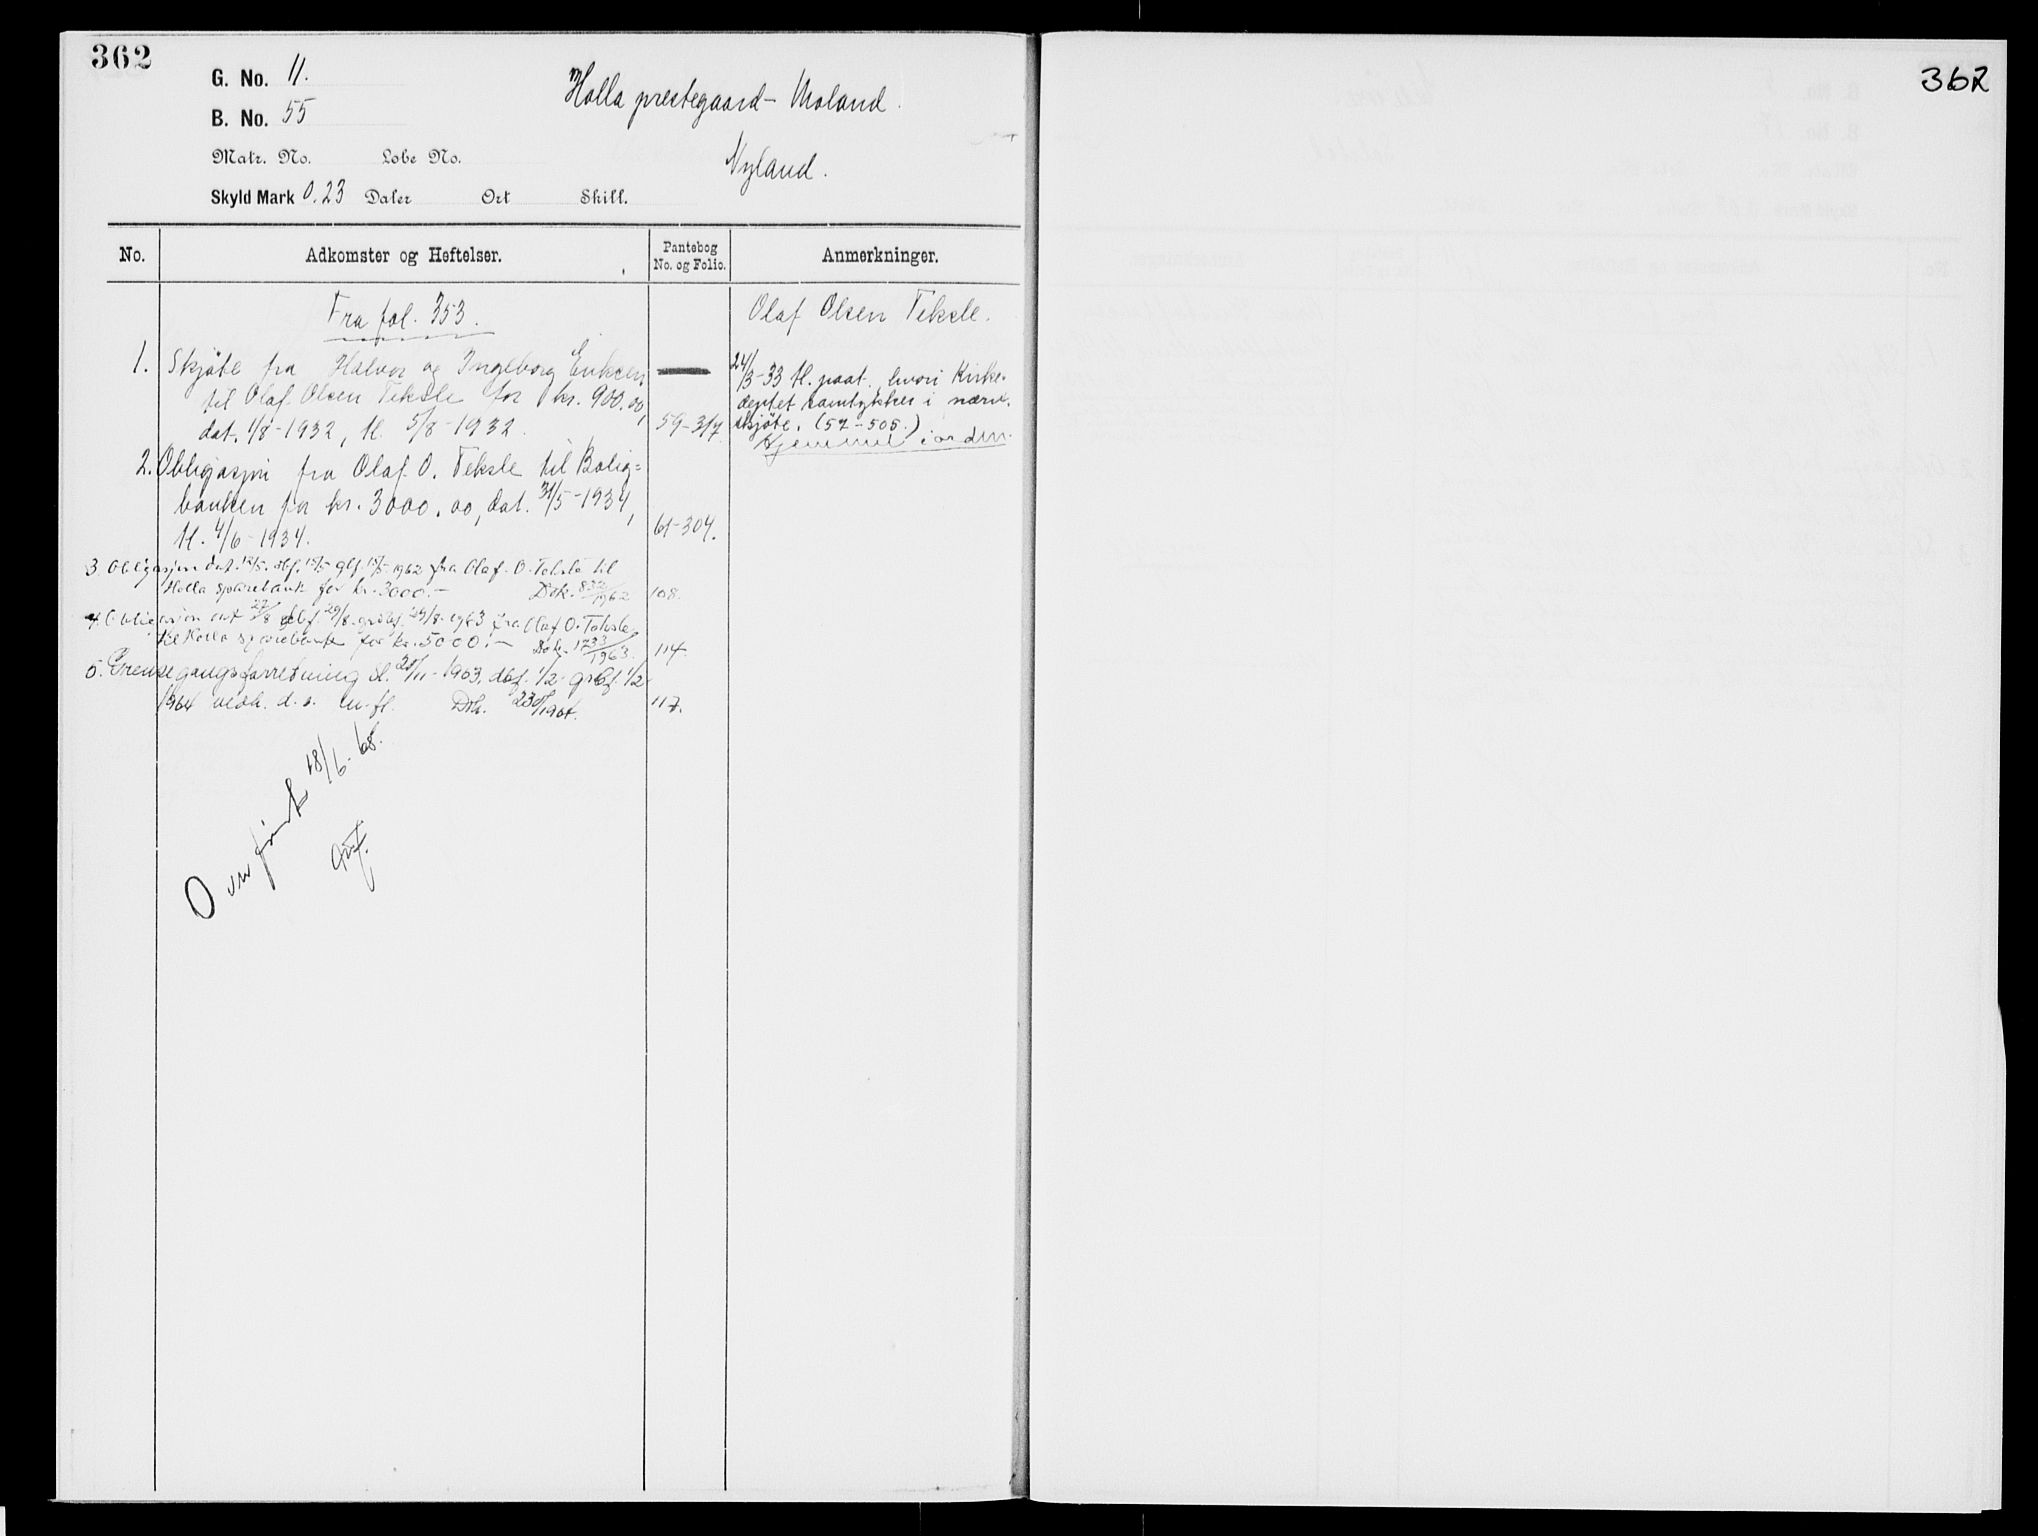 362
G. No. 11.
B. No. 55
Matr. No. Løbe No.
Skyld Mark 0.23 Daler Ort Skill.
Holla prestegaard - Moland.
Nyland.
No. Adkomster og Heftelser. Pantebog No. og Folio. Anmerkninger.
Fra fol. 353.
1. Skjøte fra Halvor og Ingeborg Eriksen
til Olaf Olsen Teksle for kr. 900.00,
dat. 1/8-1932, tl. 5/8-1932. 59-317.
2. Obligasjon fra Olaf O. Teksle til Bolig=
banken for kr. 3000,00, dat. 31/5-1934,
tl. 4/6-1934. 61-304.
3 Obligasjon dat. 12/5. dbf. 15/5 gbf. 15/5 1962 fra Olaf O. Teksle til
Holla sparebank for kr. 3000.- Dok. 832/1962 108.
4. Obligasjon dat 27/8 dbf. 29/8. grbf. 29/8-1963 fra Olaf O. Teksle
til Holla sparebank for kr. 5000.- Dok. 1733/1963. 114.
5. Grensegangsforretning tl. /11-1963, dbf. 1/2 grbf. 1/2
1964 vedk. d. e. m. fl. Dok. 1964. 117.
Overført 18/6.68.
Olaf Olsen Teksle.
24/3-33 tl. paat. hvori Kirke-
deptet samtykker i nærv.
skjøte. (57-505.)
Hjemmel i orden.
362